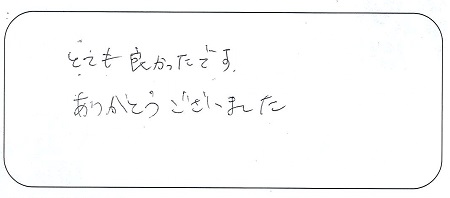 とても良かったです。
ありがとうございました